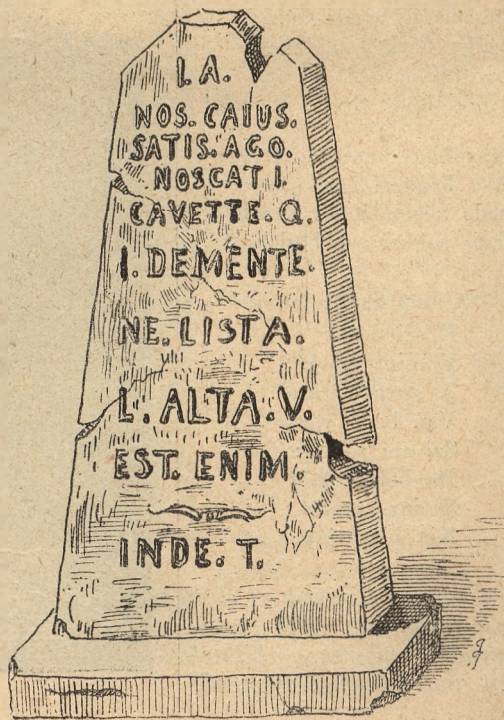 I. A.
NOS. CAIUS.
SATIS. AGO.
NOSCAT I.
CAVETTE. Q.
I. DEMENTE.
NE. LISTA.
L. ALTA. V.
EST. ENIM.
INDE. T.